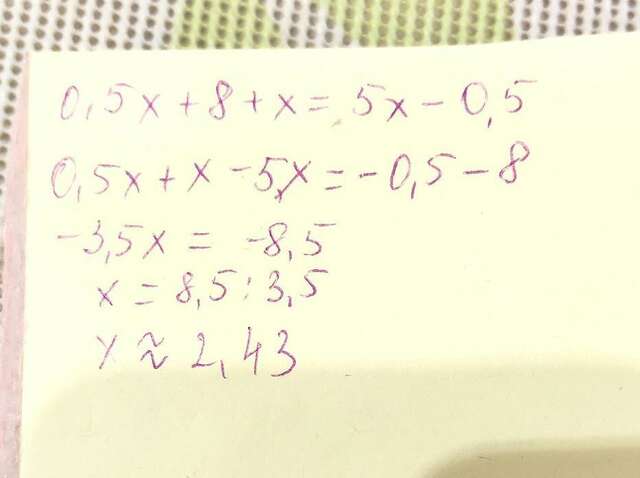 0,5x + 8 + x = 5x - 0,5
0,5x + x - 5x = -0,5 - 8
-3,5x = -8,5
x = 8,5 : 3,5
x ≈ 2,43